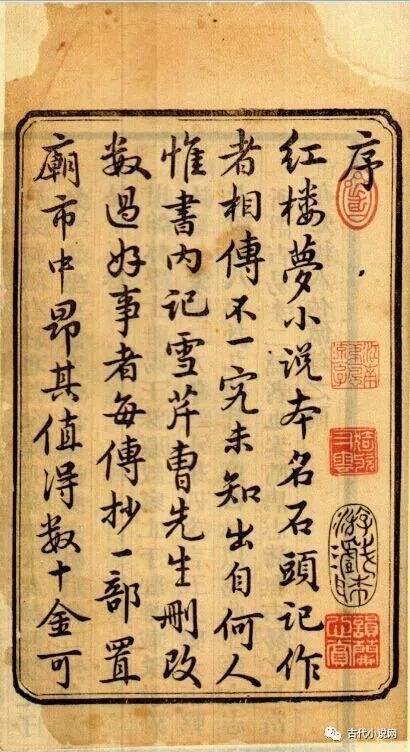 序
红楼夢小说本名石頭記作
者相傳不一究未知出自何人
惟書内记雪芹曹先生刪改
数過好事者每傳抄一部置
廟市中昂其值得数十金可
古代小说网